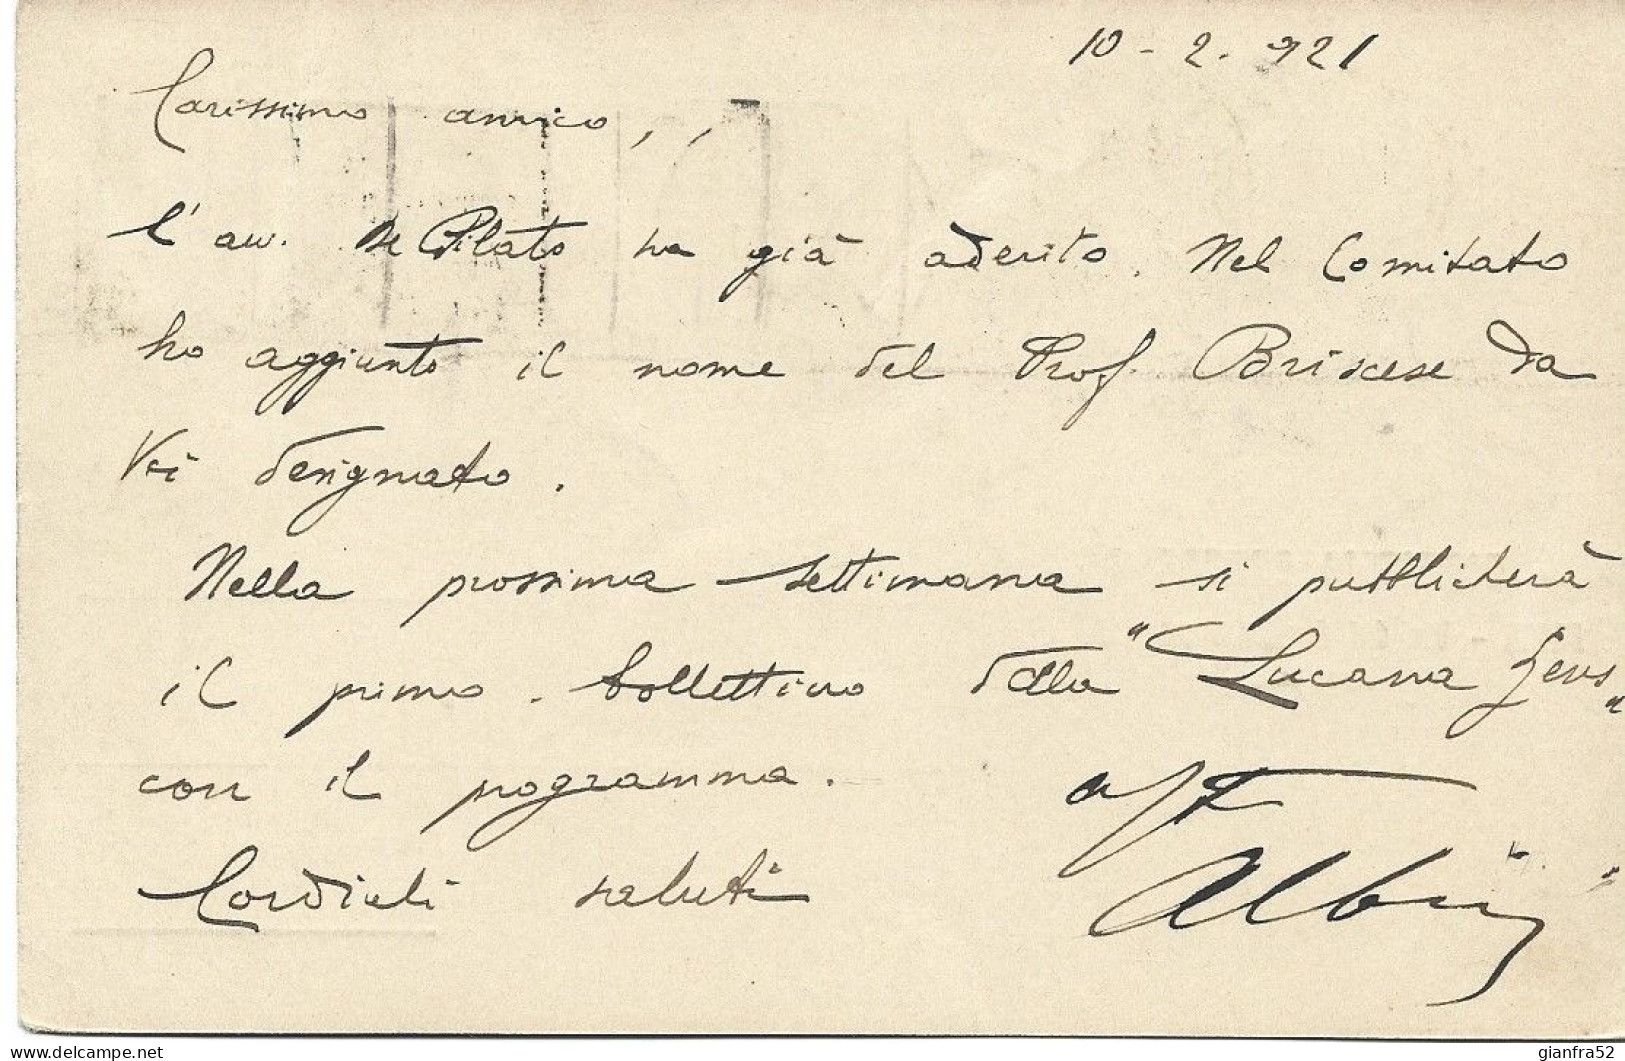 10 - 2 - 921
Carissimo amico,
l'avv. De Pilato ha già aderito. Nel Comitato
ho aggiunto il nome del Prof. Briscese da
Voi designato.
Nella prossima settimana si pubblicherà
il primo bollettino della "Lucana Gens"
con il programma.
Cordiali saluti
aff
delcampe.net
gianfra52